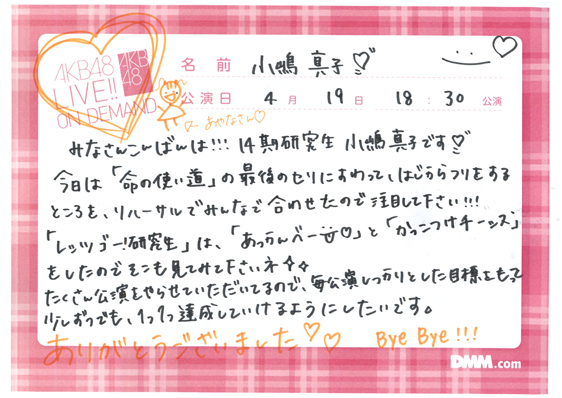 AKB48
LIVE!!
ON DEMAND
AKB
48
名前 小嶋 真子♡
公演日 4月 19日 18:30 公演
みなさんこんばんは!!! 14期研究生 小嶋真子です♡
今日は「命の使い道」の最後のセリにすわって、はじからフリをする
ところを、リハーサルでみんなで合わせたので注目して下さい!!!
「レッツゴー!研究生」は、「あっかんべー♡」と「かっこつけチーッス」
をしたのでそこも見てみて下さいネ✧✧
たくさん公演をやらせていただいてるので、毎公演しっかりとした目標をもって
少しずつでも、1つ1つ達成していけるようにしたいです。
ありがとうございました♡♡ Bye Bye!!!
DMM.com